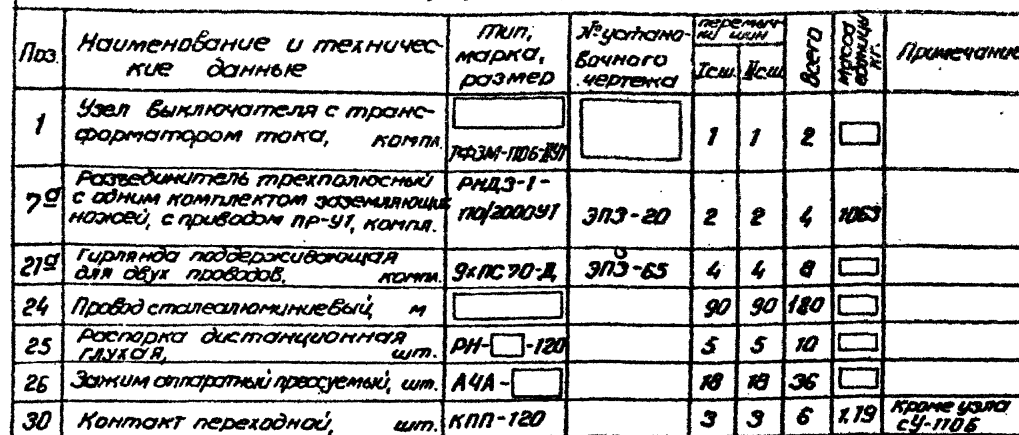 Поз.
Наименование и техничес-
кие данные
Тип,
марка,
размер
№ устано-
вочного
чертежа
перемыч-
ки шин
Iсш
IIсш
Всего
масса
единицы
кг.
Примечание
1
Узел выключателя с транс-
форматором тока, компл.
ТФЗМ-110Б-IVУ1
1
1
2
7а
Разъединитель трехполюсный
с одним комплектом заземляющих
ножей, с приводом ПР-У1, компл.
РНДЗ-1-
110/2000У1
ЭПЗ-20
2
2
4
1063
21а
Гирлянда поддерживающая
для двух проводов, компл.
9хПС70-Д
ЭПЗ-65
4
4
8
24
Провод сталеалюминиевый, м
90
90
180
25
Распорка дистанционная
глухая, шт.
РН- -120
5
5
10
26
Зажим аппаратный прессуемый, шт.
А4А-
18
18
36
30
Контакт переходной, шт.
КПП-120
3
3
6
1.19
Кроме узла
сУ-110Б